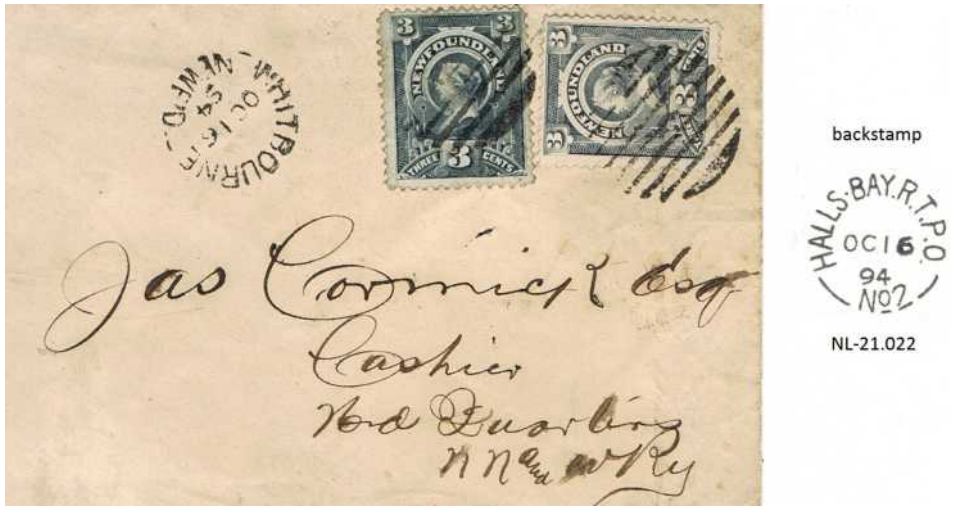 WHITBOURNE NEWFD.
OC 16
94
3 3
NEWFOUNDLAND
THREE 3 CENTS
3 3
NEWFOUNDLAND
3
Jas Cormick Esq
Cashier
Hd Quarters
N N and W Ry
backstamp
HALLS·BAY.R.T.P.O.
OC16
94
No2
NL-21.022